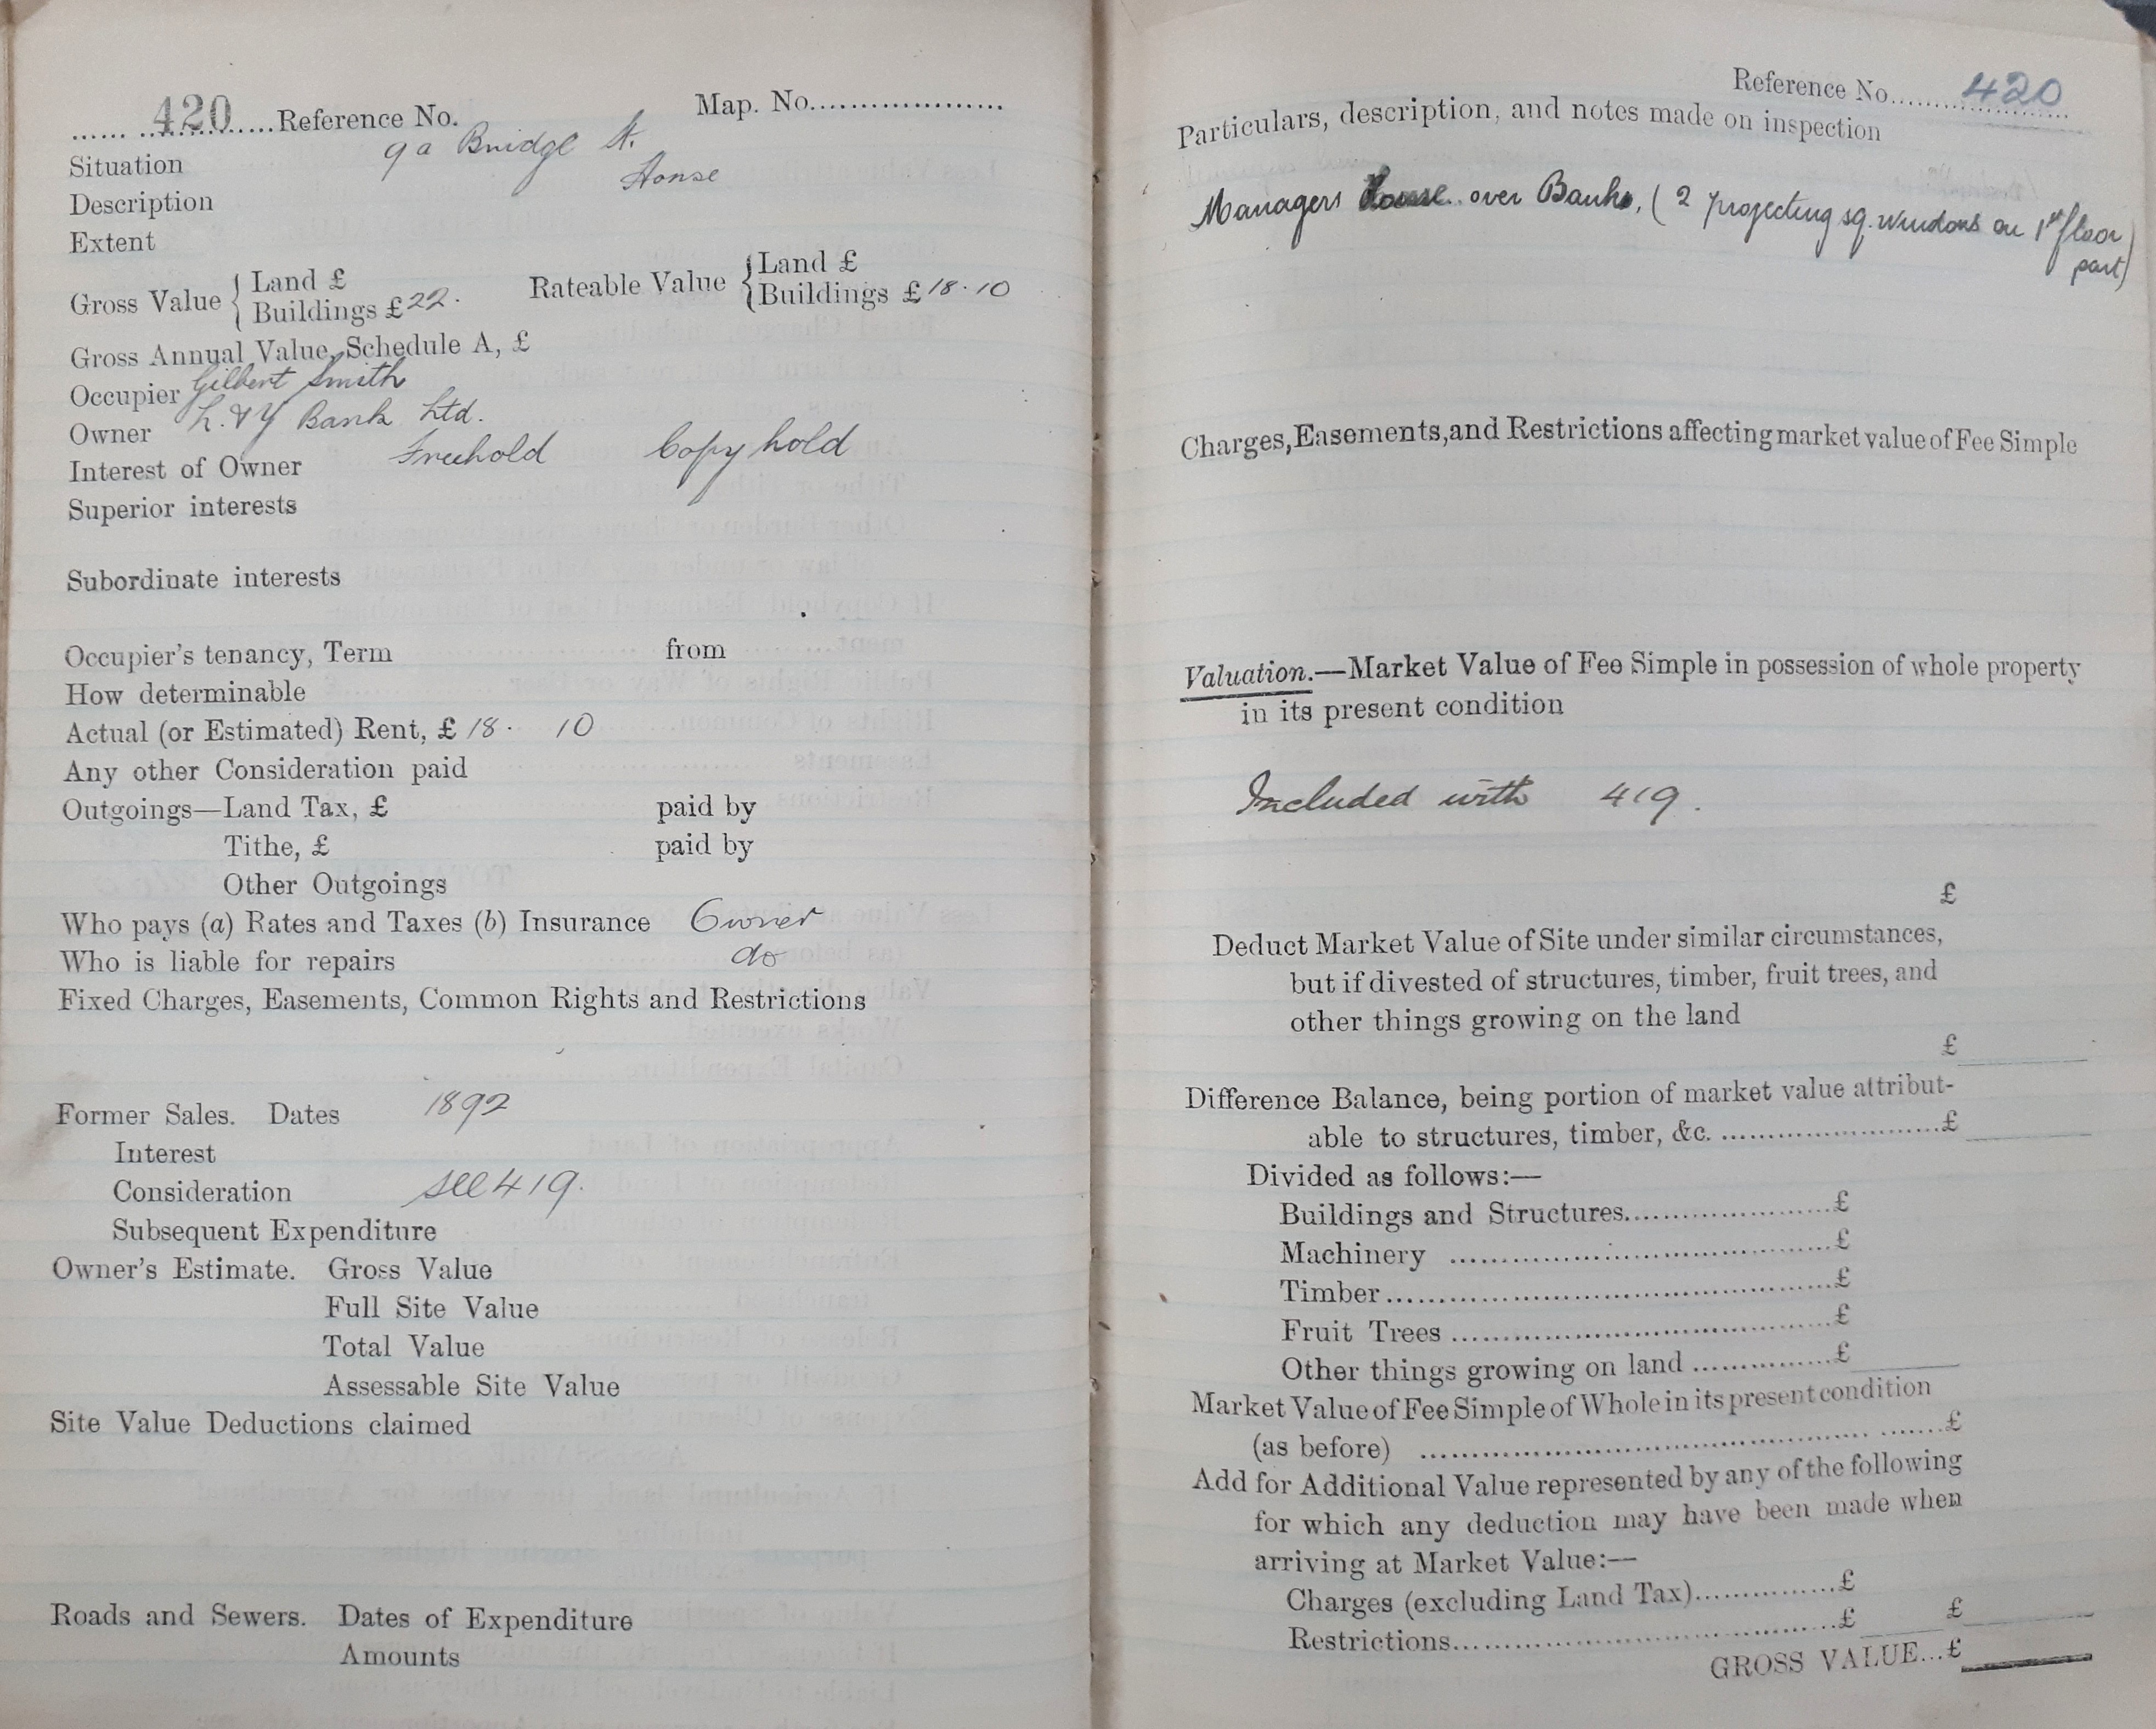 ...... 420 ......Reference No. Map. No....................
Situation 9a Bridge St.
Description House
Extent
Gross Value { Land £ Rateable Value { Land £
Buildings £22. Buildings £18.10
Gross Annual Value, Schedule A, £
Occupier Gilbert Smith
Owner L. & Y Bank Ltd.
Interest of Owner Freehold Copyhold
Superior interests
Subordinate interests
Occupier's tenancy, Term from
How determinable
Actual (or Estimated) Rent, £ 18. 10
Any other Consideration paid
Outgoings—Land Tax, £ paid by
Tithe, £ paid by
Other Outgoings
Who pays (a) Rates and Taxes (b) Insurance Owner
Who is liable for repairs do
Fixed Charges, Easements, Common Rights and Restrictions
Former Sales. Dates 1892
Interest
Consideration see 419.
Subsequent Expenditure
Owner's Estimate. Gross Value
Full Site Value
Total Value
Assessable Site Value
Site Value Deductions claimed
Roads and Sewers. Dates of Expenditure
Amounts
Reference No. 420
Particulars, description, and notes made on inspection
Managers House over Bank, (2 projecting sq. windows on 1st floor
part)
Charges, Easements, and Restrictions affecting market value of Fee Simple
Valuation.—Market Value of Fee Simple in possession of whole property
in its present condition
Included with 419.
£
Deduct Market Value of Site under similar circumstances,
but if divested of structures, timber, fruit trees, and
other things growing on the land
£
Difference Balance, being portion of market value attribut-
able to structures, timber, &c. ..........................£
Divided as follows:—
Buildings and Structures.......................£
Machinery ..........................................£
Timber.................................................£
Fruit Trees ..........................................£
Other things growing on land ...............£
Market Value of Fee Simple of Whole in its present condition
(as before) ..........................................................£
Add for Additional Value represented by any of the following
for which any deduction may have been made when
arriving at Market Value:—
Charges (excluding Land Tax)...............£
Restrictions..........................................£ £
GROSS VALUE...£